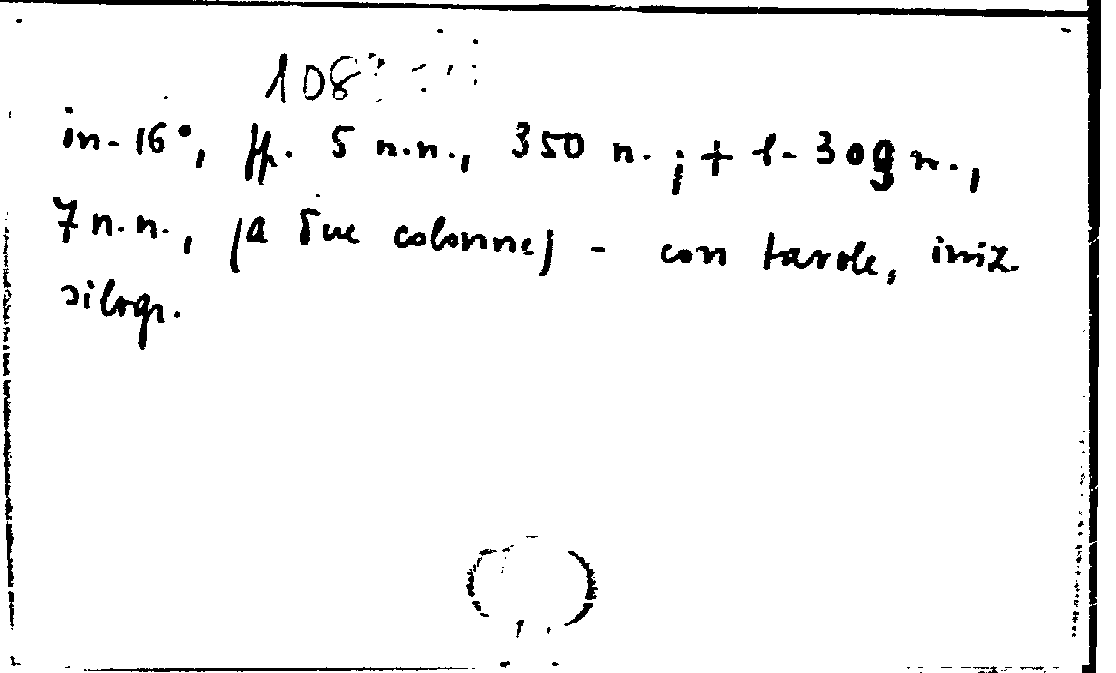 108
in-16°, ff. 5 n.n., 350 n.; + 1-309 n.,
7 n.n., (a due colonne) - con tavole, iniz.
silogr.